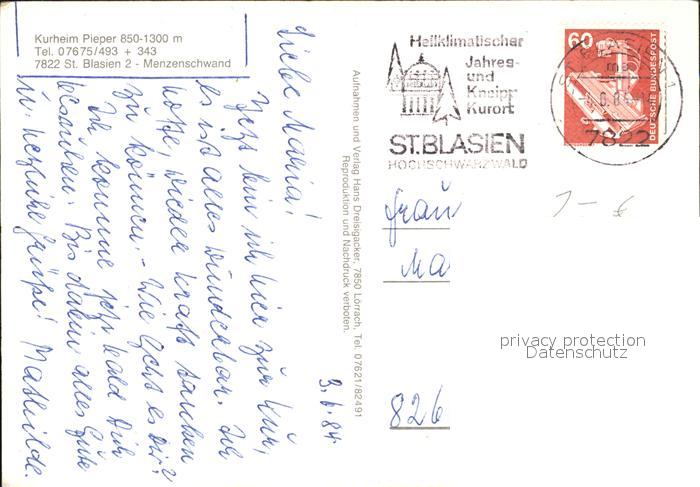 Kurheim Pieper 850-1300 m
Tel. 07675/493 + 343
7822 St. Blasien 2 - Menzenschwand
3.6.84
Liebe Maria!
Jetzt bin ich hier zur Kur,
es ist alles wunderbar. Ich
hoffe, wieder Kraft tanken
zu können. - Wie geht es Dir?
Ich komme jetzt bald Dich
besuchen. Bis dahin alles Gute
u. herzliche Grüße! Mathilde.
Aufnahmen und Verlag Hans Dreisigacker, 7850 Lörrach, Tel. 07621/82491
Reproduktion und Nachdruck verboten.
Heilklimatischer
Jahres-
und
Kneipp
Kurort
ST.BLASIEN
HOCHSCHWARZWALD
60
DEUTSCHE BUNDESPOST
7822
Frau
Ma
826
1-€
privacy protection
Datenschutz